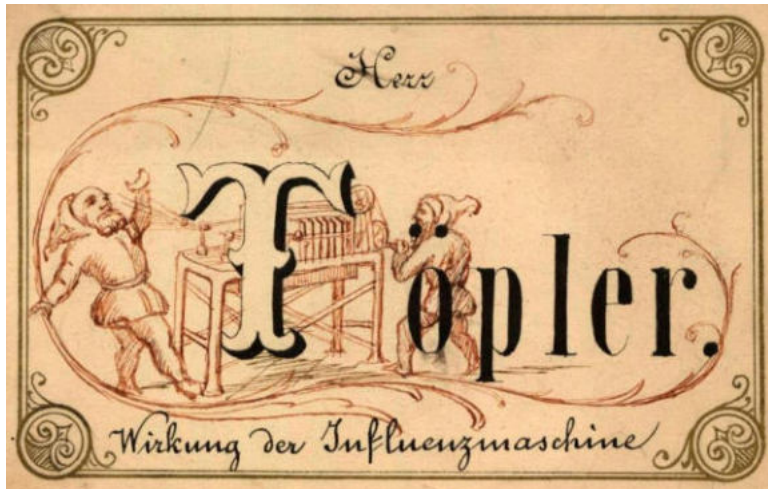 Herr
Töpler.
Wirkung der Influenzmaschine